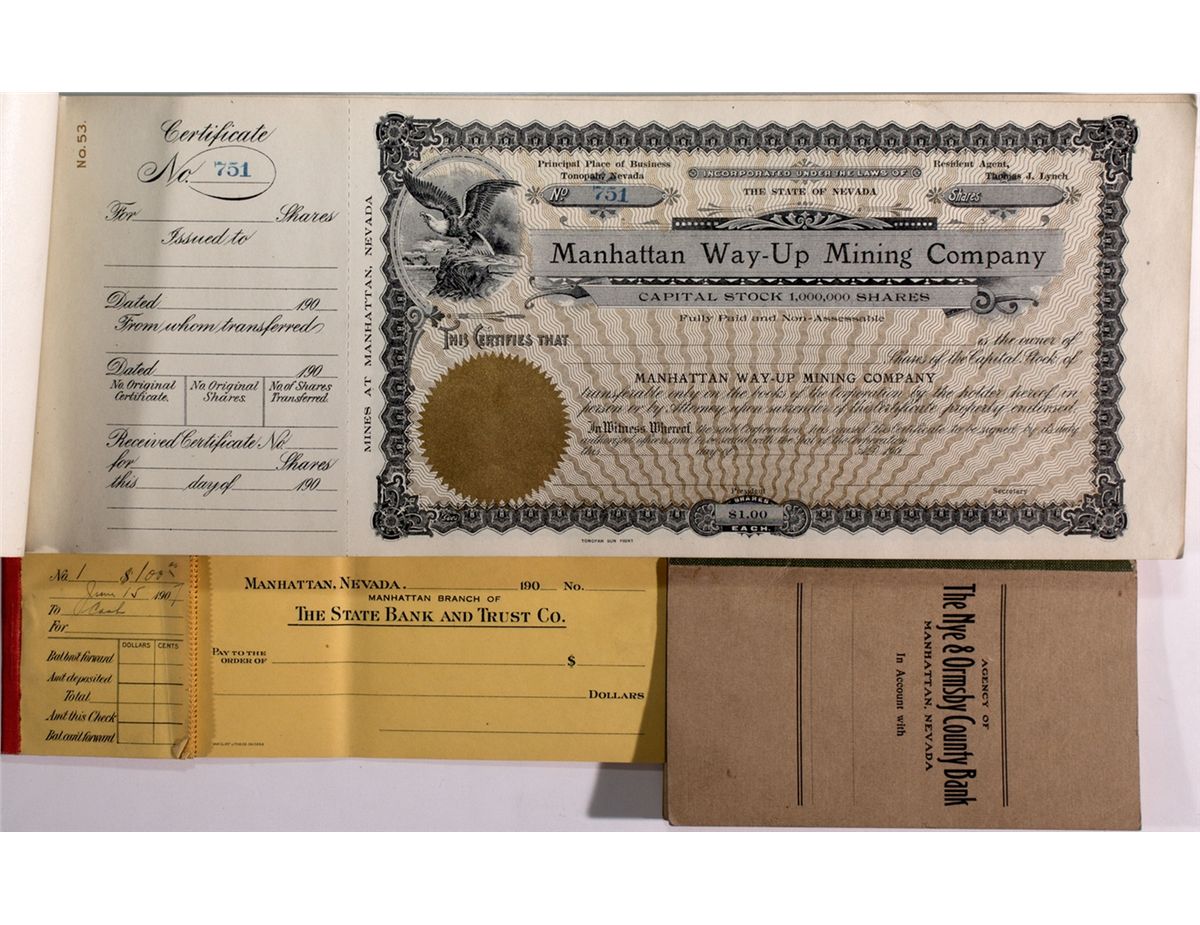 No. 53.
Certificate
No. 751
For Shares
Issued to
Dated 190
From whom transferred
Dated 190
No. Original Certificate.
No. Original Shares.
No. of Shares Transferred.
Received Certificate No
for Shares
this day of 190
MINES AT MANHATTAN, NEVADA
Principal Place of Business
Tonopah, Nevada
INCORPORATED UNDER THE LAWS OF
THE STATE OF NEVADA
Resident Agent,
Thomas J. Lynch
No 751
Shares
Manhattan Way-Up Mining Company
CAPITAL STOCK 1,000,000 SHARES
Fully Paid and Non-Assessable
THIS CERTIFIES THAT is the owner of
Shares of the Capital Stock of
MANHATTAN WAY-UP MINING COMPANY
transferable only on the books of the Corporation by the holder hereof in
person or by Attorney upon surrender of this Certificate properly endorsed.
In Witness Whereof, the said Corporation has caused this Certificate to be signed by its duly
authorized officers and to be sealed with the Seal of the Corporation
this day of A.D. 190
President Secretary
SHARES
$1.00
EACH
TONOPAH SUN PRINT
No. 1 $100
June 15 1907
To Cash
For
DOLLARS CENTS
Bal. bro't forward
Amt deposited
Total
Amt this Check
Bal. car'd forward
MANHATTAN, NEVADA. 190 No.
MANHATTAN BRANCH OF
THE STATE BANK AND TRUST CO.
PAY TO THE
ORDER OF $
DOLLARS
AGENCY OF
The Nye & Ormsby County Bank
MANHATTAN, NEVADA
In Account with